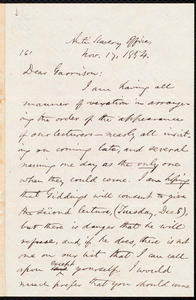 Anti Slavery Office,
Nov. 17, 1854.
Dear Garrison:
I am having all
manner of vexation in arrang-
ing the order of the appearance
of our lecturers—nearly all insist-
ing on coming late, and several
naming one day as the only one
when they could come. I am hoping
that Giddings will consent to give
the second lecture, (Tuesday, Dec. 5),
but there is danger that he will
refuse, and, if he does, there is not
one on our list that I can call
upon except yourself. I would
much prefer that you should come